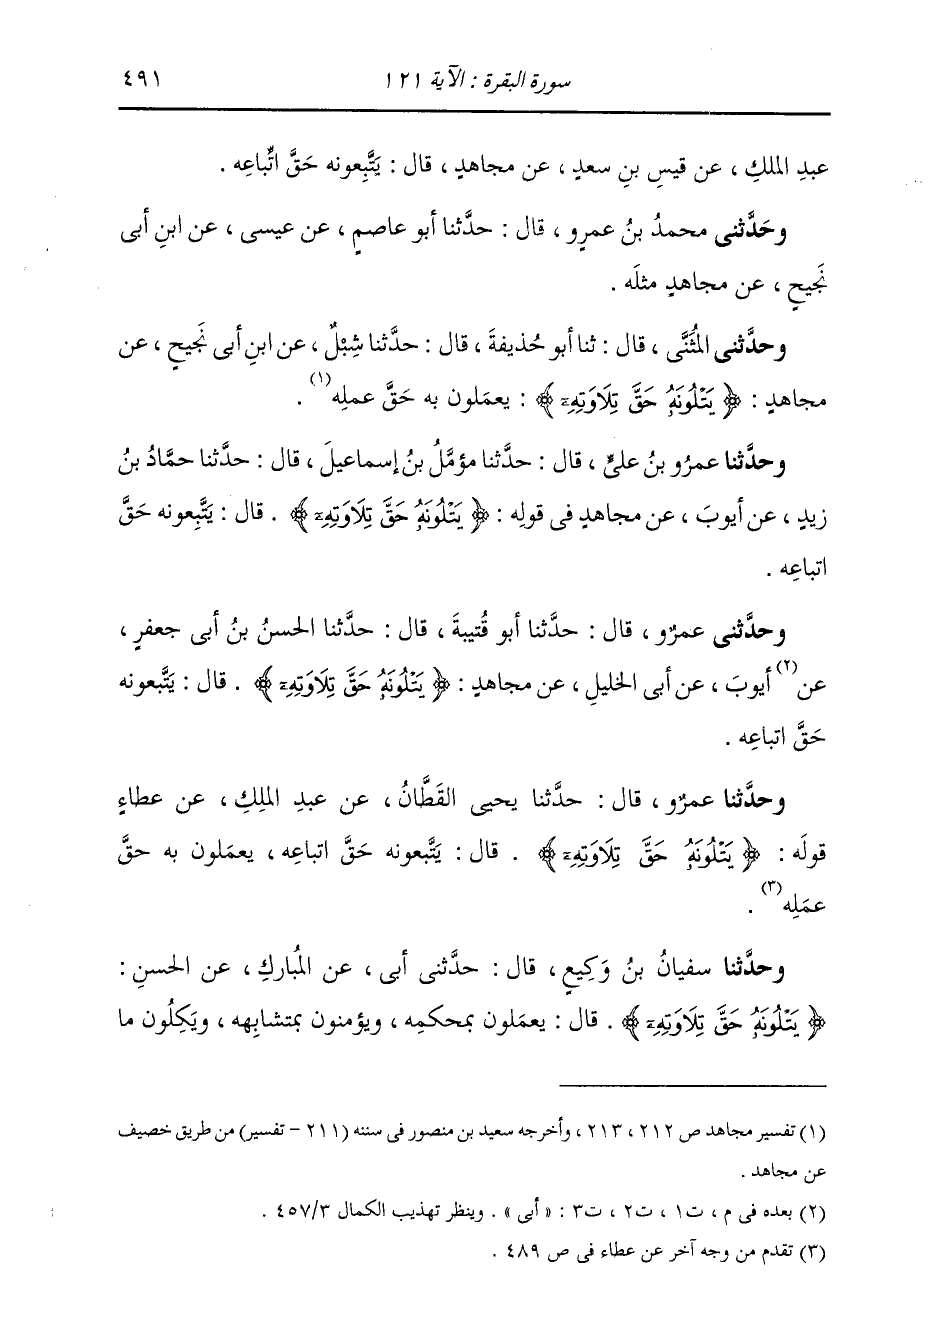 سورة البقرة : الآية ١٢١
٤٩١
عبدِ الملكِ ، عن قيسِ بنِ سعدٍ ، عن مجاهدٍ ، قال : يَتَّبِعونه حَقَّ اتِّباعِه .
وحَدَّثنى محمدُ بنُ عمرٍو ، قال : حدَّثنا أبو عاصمٍ ، عن عيسى ، عن ابنِ أبى
نَجيحٍ ، عن مجاهدٍ مثلَه .
وحدَّثنى المُثَنَّى ، قال : ثنا أبو حُذيفةَ ، قال : حدَّثنا شِبْلٌ ، عن ابنِ أبى نَجيحٍ ، عن
مجاهدٍ : ﴿ يَتْلُونَهُ حَقَّ تِلَاوَتِهِۦ ﴾ : يعمَلون به حَقَّ عملِه(١) .
وحدَّثنا عمرُو بنُ علىٍّ ، قال : حدَّثنا مؤمَّلُ بنُ إسماعيلَ ، قال : حدَّثنا حمَّادُ بنُ
زيدٍ ، عن أيوبَ ، عن مجاهدٍ فى قولِه : ﴿ يَتْلُونَهُ حَقَّ تِلَاوَتِهِۦ ﴾ . قال : يَتَّبِعونه حَقَّ
اتباعِه .
وحدَّثنى عمرٌو ، قال : حدَّثنا أبو قُتيبةَ ، قال : حدَّثنا الحسنُ بنُ أبى جعفرٍ ،
عن(٢) أيوبَ ، عن أبى الخليلِ ، عن مجاهدٍ : ﴿ يَتْلُونَهُ حَقَّ تِلَاوَتِهِۦ ﴾ . قال : يَتَّبعونه
حَقَّ اتباعِه .
وحدَّثنا عمرٌو ، قال : حدَّثنا يحيى القَطَّانُ ، عن عبدِ الملِكِ ، عن عطاءٍ
قولَه : ﴿ يَتْلُونَهُ حَقَّ تِلَاوَتِهِۦ ﴾ . قال : يَتَّبعونه حَقَّ اتباعِه ، يعمَلون به حقَّ
عمَلِه(٣) .
وحدَّثنا سفيانُ بنُ وَكِيعٍ ، قال : حدَّثنى أبى ، عن المُباركِ ، عن الحسنِ :
﴿ يَتْلُونَهُ حَقَّ تِلَاوَتِهِۦ ﴾ . قال : يعمَلون بمحكمِه ، ويؤمنون بمتشابِهه ، ويَكِلُون ما
(١) تفسير مجاهد ص ٢١٢ ، ٢١٣ ، وأخرجه سعيد بن منصور فى سننه (٢١١ – تفسير) من طريق خصيف
عن مجاهد .
(٢) بعده فى م ، ت١ ، ت٢ ، ت٣ : « أبى » . وينظر تهذيب الكمال ٤٥٧/٣ .
(٣) تقدم من وجه آخر عن عطاء فى ص ٤٨٩ .